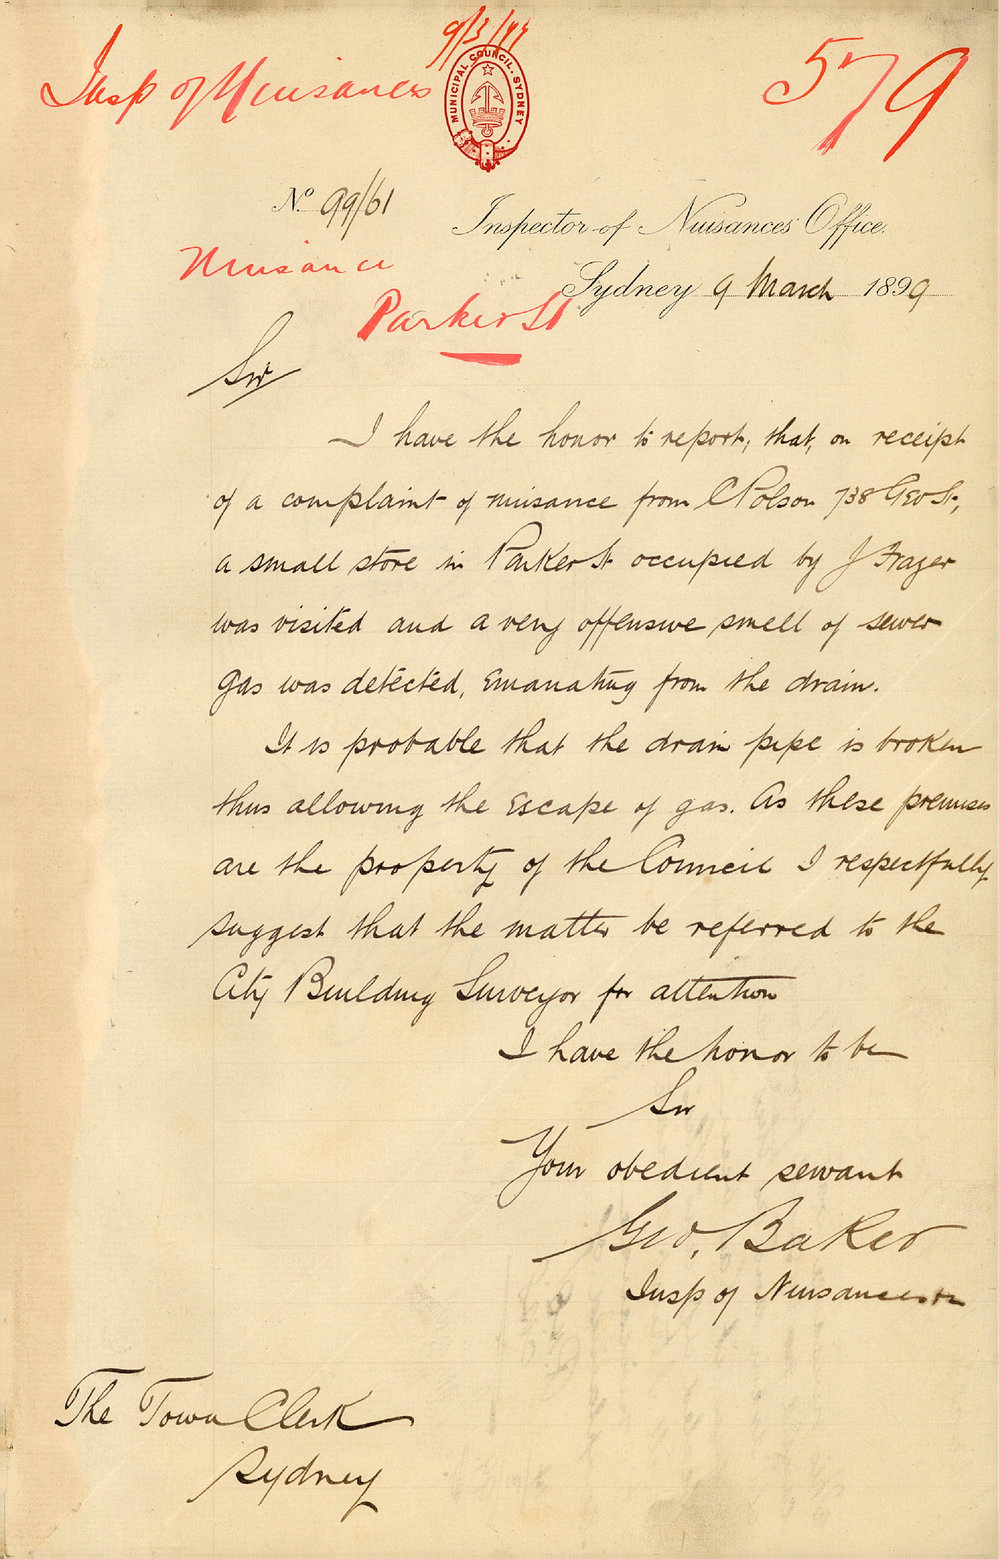 9/3/99
Insp of Nuisances
579
MUNICIPAL COUNCIL · SYDNEY
No. 99/61
Inspector of Nuisances' Office.
Nuisance
Sydney 9 March 1899
Parker St
Sir
I have the honor to report, that, on receipt
of a complaint of nuisance from C Polson 738 Geo St,
a small store in Parker St occupied by J Frazer
was visited and a very offensive smell of sewer
gas was detected, emanating from the drain.
It is probable that the drain pipe is broken
thus allowing the escape of gas. As these premises
are the property of the Council I respectfully
suggest that the matter be referred to the
City Building Surveyor for attention
I have the honor to be
Sir
Your obedient servant
Geo. Baker
Insp of Nuisances
The Town Clerk
Sydney